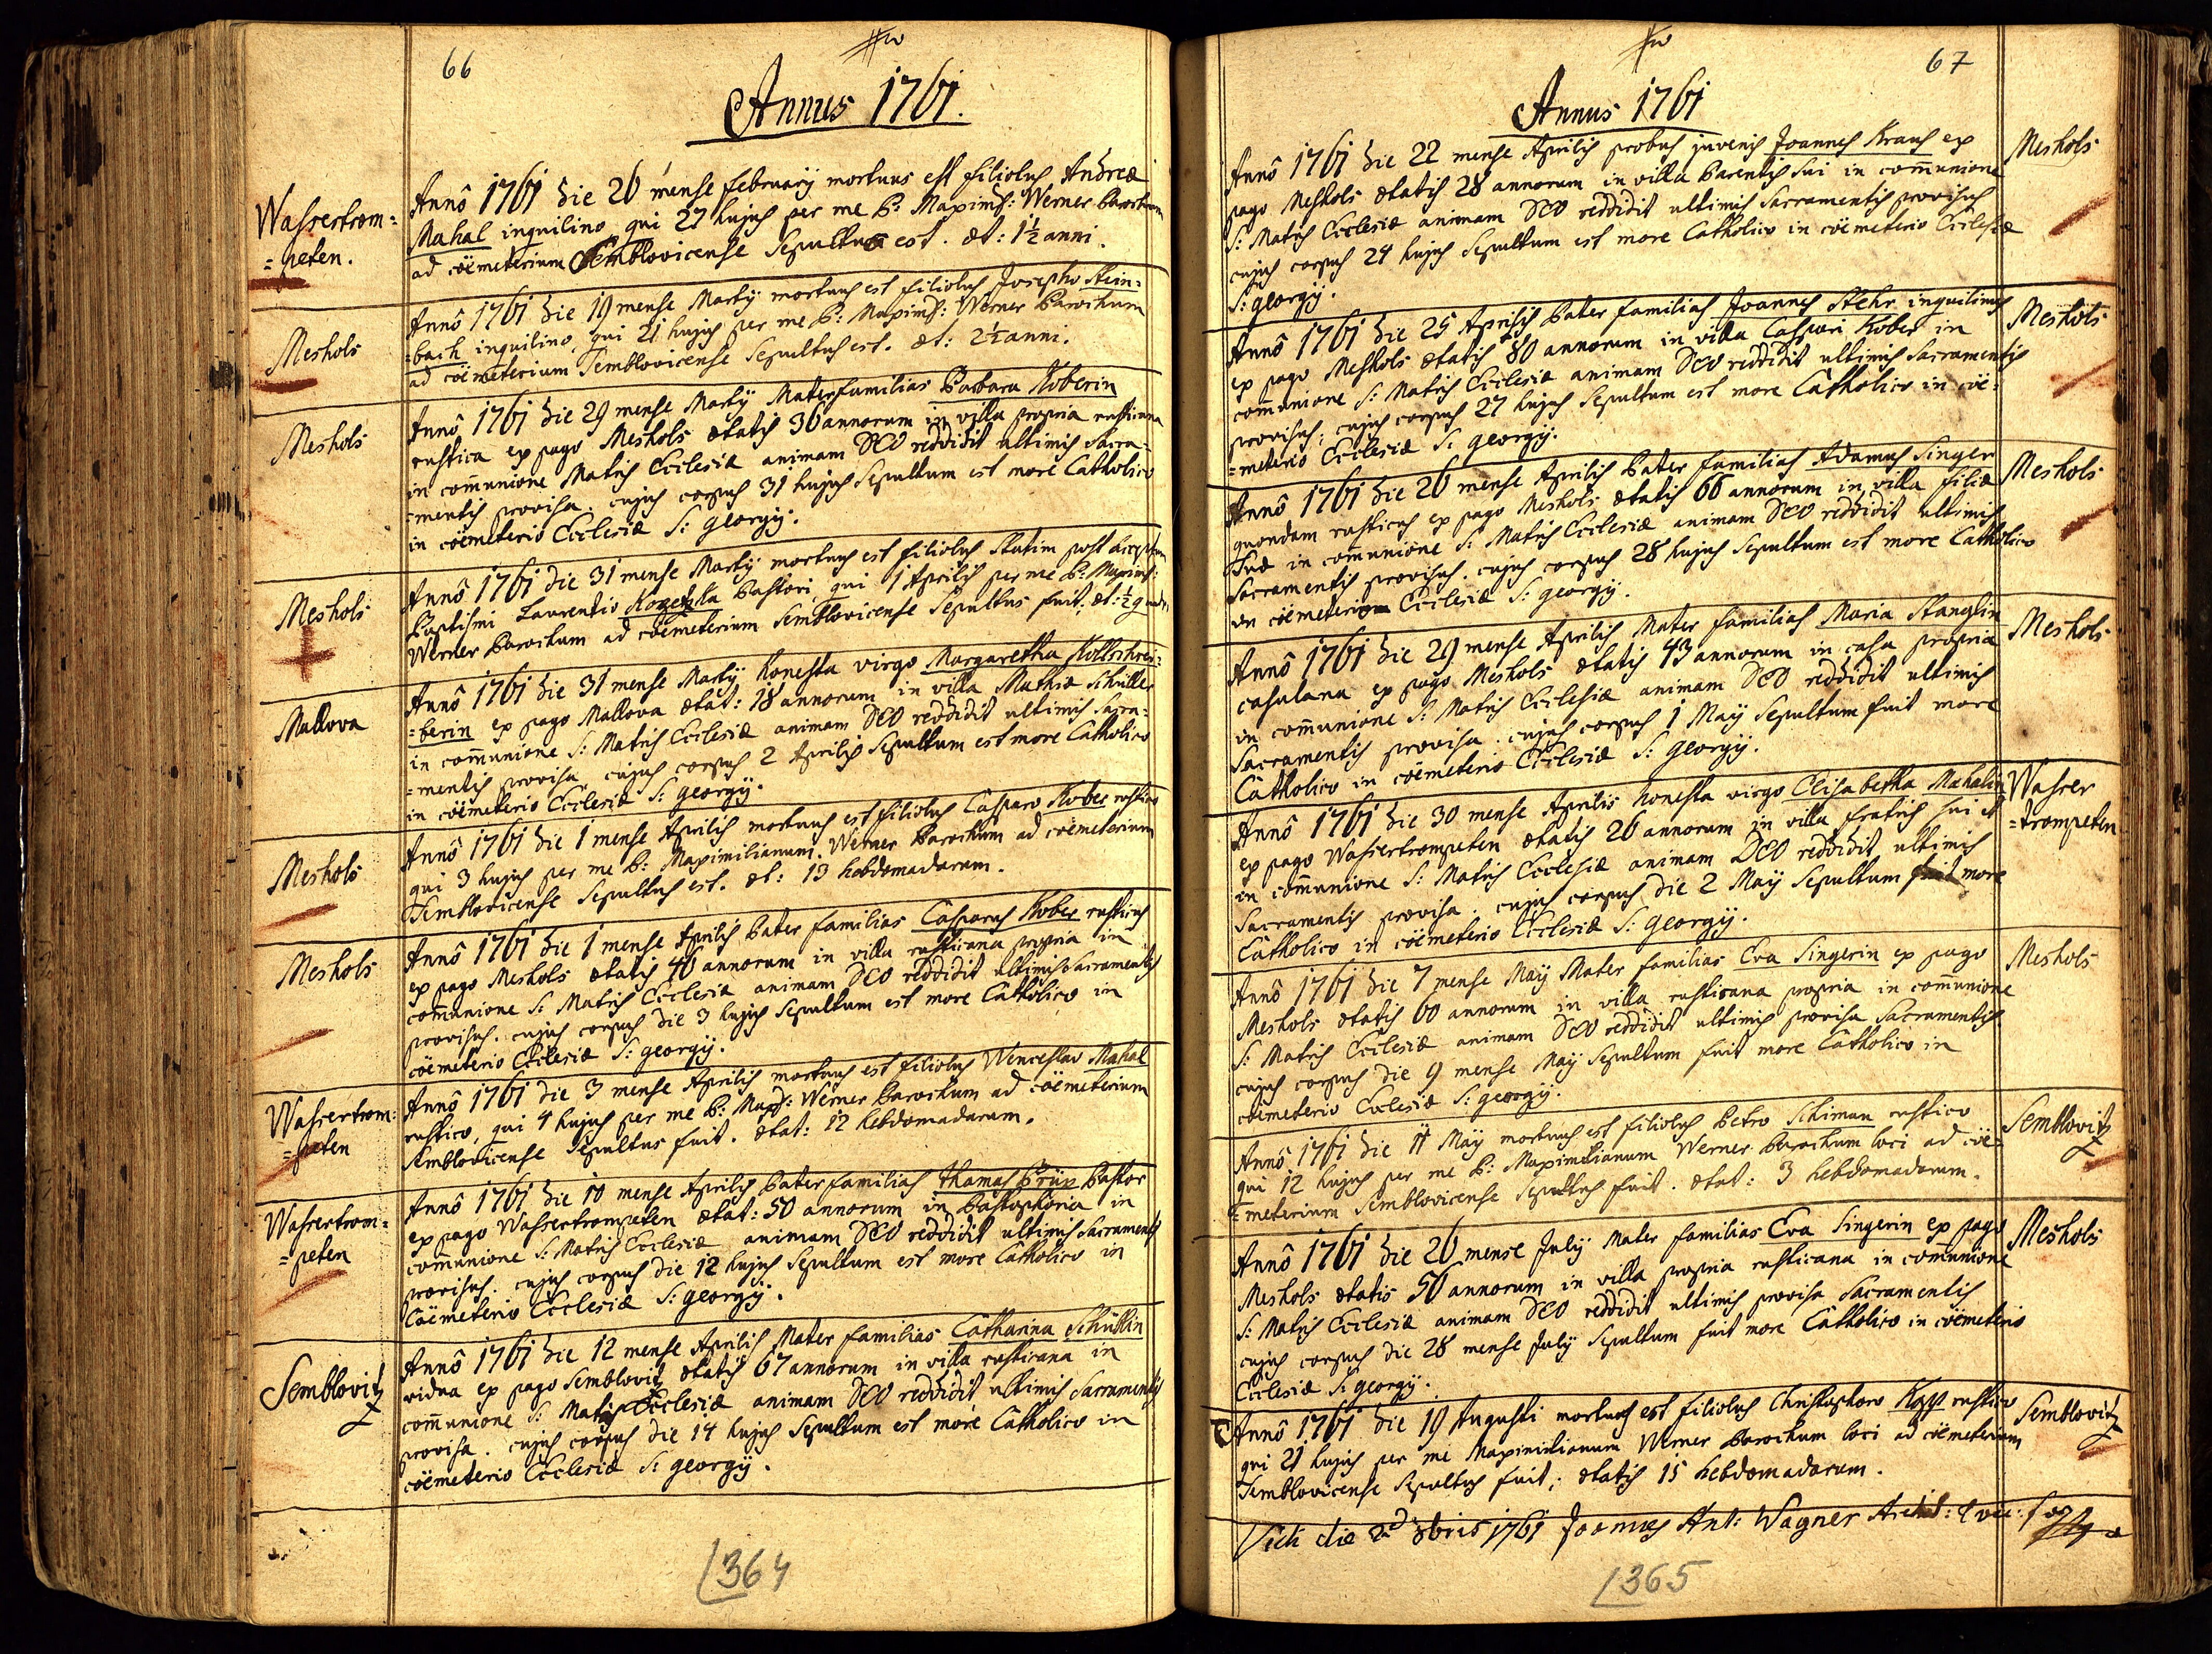 66
Annus 1761.
Wasrertrom=
=peten.
Annô 1761 die 26 mense february mortuus est filiolus Andreæ
Mahal inquilino, qui 27 hujus per me P: Maximil: Werner Parochum
ad cöemeterium Semblovicense Sepultus est. æt: 1½ anni.
Meshols
Annô 1761 die 19 mense Marty mortuus est filiolus Josepho Stein=
=bach inquilino, qui 21 hujus per me P: Maximil: Werner Parochum
ad cöemeterium Semblovicense Sepultus est. æt: 2½ anni.
Meshols
Annô 1761 die 29 mense Marty Materfamilias Barbara Koberin
rustica ex pago Meshols ætatis 36 annorum in villa propria rusticana
in com̄unione Matris Ecclesiæ animam DEO reddidit ultimis Sacra=
=mentis provisa. cujus corpus 31 hujus Sepultum est more Catholico
in cöemeterio Ecclesiæ S: georgÿ.
Meshols
Annô 1761 die 31 mense Marty mortuus est filiolus Statim post
Baptismi Laurentio Kozetzka Pastori, qui 1 Aprilis per me P: Maximil:
Werner Parochum ad cöemeterium Semblovicense Sepultus fuit. æt: ½
Mallova
Annô 1761 die 31 mense Marty honesta virgo Margaretha Kollschrei=
=berin ex pago Mallova ætat: 18 annorum in villa Mathiæ Schüller
in com̄unione S: Matris Ecclesiæ animam DEO reddidit ultimis Sacra=
=mentis provisa cujus corpus 2 Aprilis Sepultum est more Catholico
in cöemeterio Ecclesiæ S: georgÿ.
Meshols
Annô 1761 die 1 mense Aprilis mortuus est filiolus Casparo Kober rustico
qui 3 hujus per me P: Maximilianum. Werner Parochum ad cöemeterium
Semblovicense Sepultus est. æt: 13 hebdomadarum.
Meshols
Annô 1761 die 1 mense Aprilis Pater familias Casparus Kober rusticus
ex pago Meshols ætatis 40 annorum in villa rusticana propria in
com̄unione S: Matris Ecclesiæ animam DEO reddidit ultimis Sacramentis
provisus. cujus corpus die 3 hujus Sepultum est more Catholico in
cöemeterio Ecclesiæ S: georgÿ.
Wasrertrom=
=peten
Annô 1761 die 3 mense Aprilis mortuus est filiolus Wenceslao Mahal
rustico, qui 4 hujus per me P: Max: Werner Parochum ad cöemeterium
Semblovicense Sepultus fuit. ætat: 12 hebdomadarum.
Wasrertrom=
=peten
Annô 1761 die 10 mense Aprilis Pater familias Thomas Prün Pastor
ex pago Wasrertrompeten ætat: 50 annorum in Pastophoria in
com̄unione S: Matris Ecclesiæ animam DEO reddidit ultimis Sacramentis
provisus. cujus corpus die 12 hujus Sepultum est more Catholico in
Cöemeterio Ecclesiæ S: georgÿ.
Semblovitz
Annô 1761 die 12 mense Aprilis Mater familias Catharina Schüttlin
vidua ex pago Semblovitz ætatis 67 annorum in villa rusticana in
com̄unione S: Matris Ecclesiæ animam DEO reddidit ultimis Sacramentis
provisa. cujus corpus die 14 hujus Sepultum est more Catholico in
cöemeterio Ecclesiæ S: georgÿ.
364
67
Annus 1761
Annô 1761 die 22 mense Aprilis probus juvenis Joannes Kraus ex
pago Meshols ætatis 28 annorum in villa Parentis sui in com̄unione
S: Matris Ecclesiæ animam DEO reddidit ultimis Sacramentis provisus
cujus corpus 24 hujus Sepultum est more Catholico in cöemeterio Ecclesiæ
S: georgÿ.
Meshols
Annô 1761 die 25 Aprilis Pater familias Joannes Stehr inquilinus
ex pago Meshols ætatis 80 annorum in villa Caspari Kober in
com̄unione S: Matris Ecclesiæ animam DEO reddidit ultimis Sacramentis
provisus, cujus corpus 27 hujus Sepultum est more Catholico in cöe=
=meterio Ecclesiæ S: georgÿ.
Meshols
Annô 1761 die 26 mense Aprilis Pater familias Adamus Singer
quondam rusticus ex pago Meshols ætatis 66 annorum in villa filiæ
Suæ in com̄unione S: Matris Ecclesiæ animam DEO reddidit ultimis
Sacramentis provisus. cujus corpus 28 hujus Sepultum est more Catholico
in cöemeterio Ecclesiæ S: georgÿ.
Meshols
Annô 1761 die 29 mense Aprilis Mater familias Maria Stanglin
casulana ex pago Meshols ætatis 43 annorum in casa propria
in com̄unione S: Matris Ecclesiæ animam DEO reddidit ultimis
Sacramentis provisa. cujus corpus 1 May Sepultum fuit more
Catholico in cöemeterio Ecclesiæ S: georgÿ.
Meshols
Annô 1761 die 30 mense Aprilis honesta virgo Elisabetha Mahalin
ex pago Wasrertrompeten ætatis 26 annorum in villa fratris sui et
in com̄unione S: Matris Ecclesiæ animam DEO reddidit ultimis
Sacramentis provisa. cujus corpus die 2 May Sepultum fuit more
Catholico in cöemeterio Ecclesiæ S: georgÿ.
Wasrer
=trompeten
Annô 1761 die 7 mense May Mater familias Eva Singerin ex pago
Meshols ætatis 60 annorum in villa rusticana propria in com̄unione
S: Matris Ecclesiæ animam DEO reddidit ultimis provisa Sacramentis
cujus corpus die 9 mense May Sepultum fuit more Catholico in
cöemeterio Ecclesiæ S: georgÿ.
Meshols
Annô 1761 die 11 May mortuus est filiolus Petro Schiman rustico
qui 12 hujus per me P: Maximilianum Werner Parochum loci ad cöe=
=meterium Semblovicense Sepultus fuit. ætat: 3 hebdomadarum.
Semblovitz
Annô 1761 die 26 mense July Mater familias Eva Singerin ex pago
Meshols ætatis 56 annorum in villa propria rusticana in com̄unione
S: Matris Ecclesiæ animam DEO reddidit ultimis provisa Sacramentis
cujus corpus die 28 mense July Sepultum fuit more Catholico in cöemeterio
Ecclesiæ S: georgÿ.
Meshols
Annô 1761 die 19 Augusti mortuus est filiolus Christophoro Kopp rustico
qui 21 hujus per me Maximilianum Werner Parochum loci ad cöemeterium
Semblovicense Sepultus fuit; ætatis 15 hebdomadarum.
Semblovitz
Vidi die 8bris 1761 Joannes Ant: Wagner
365